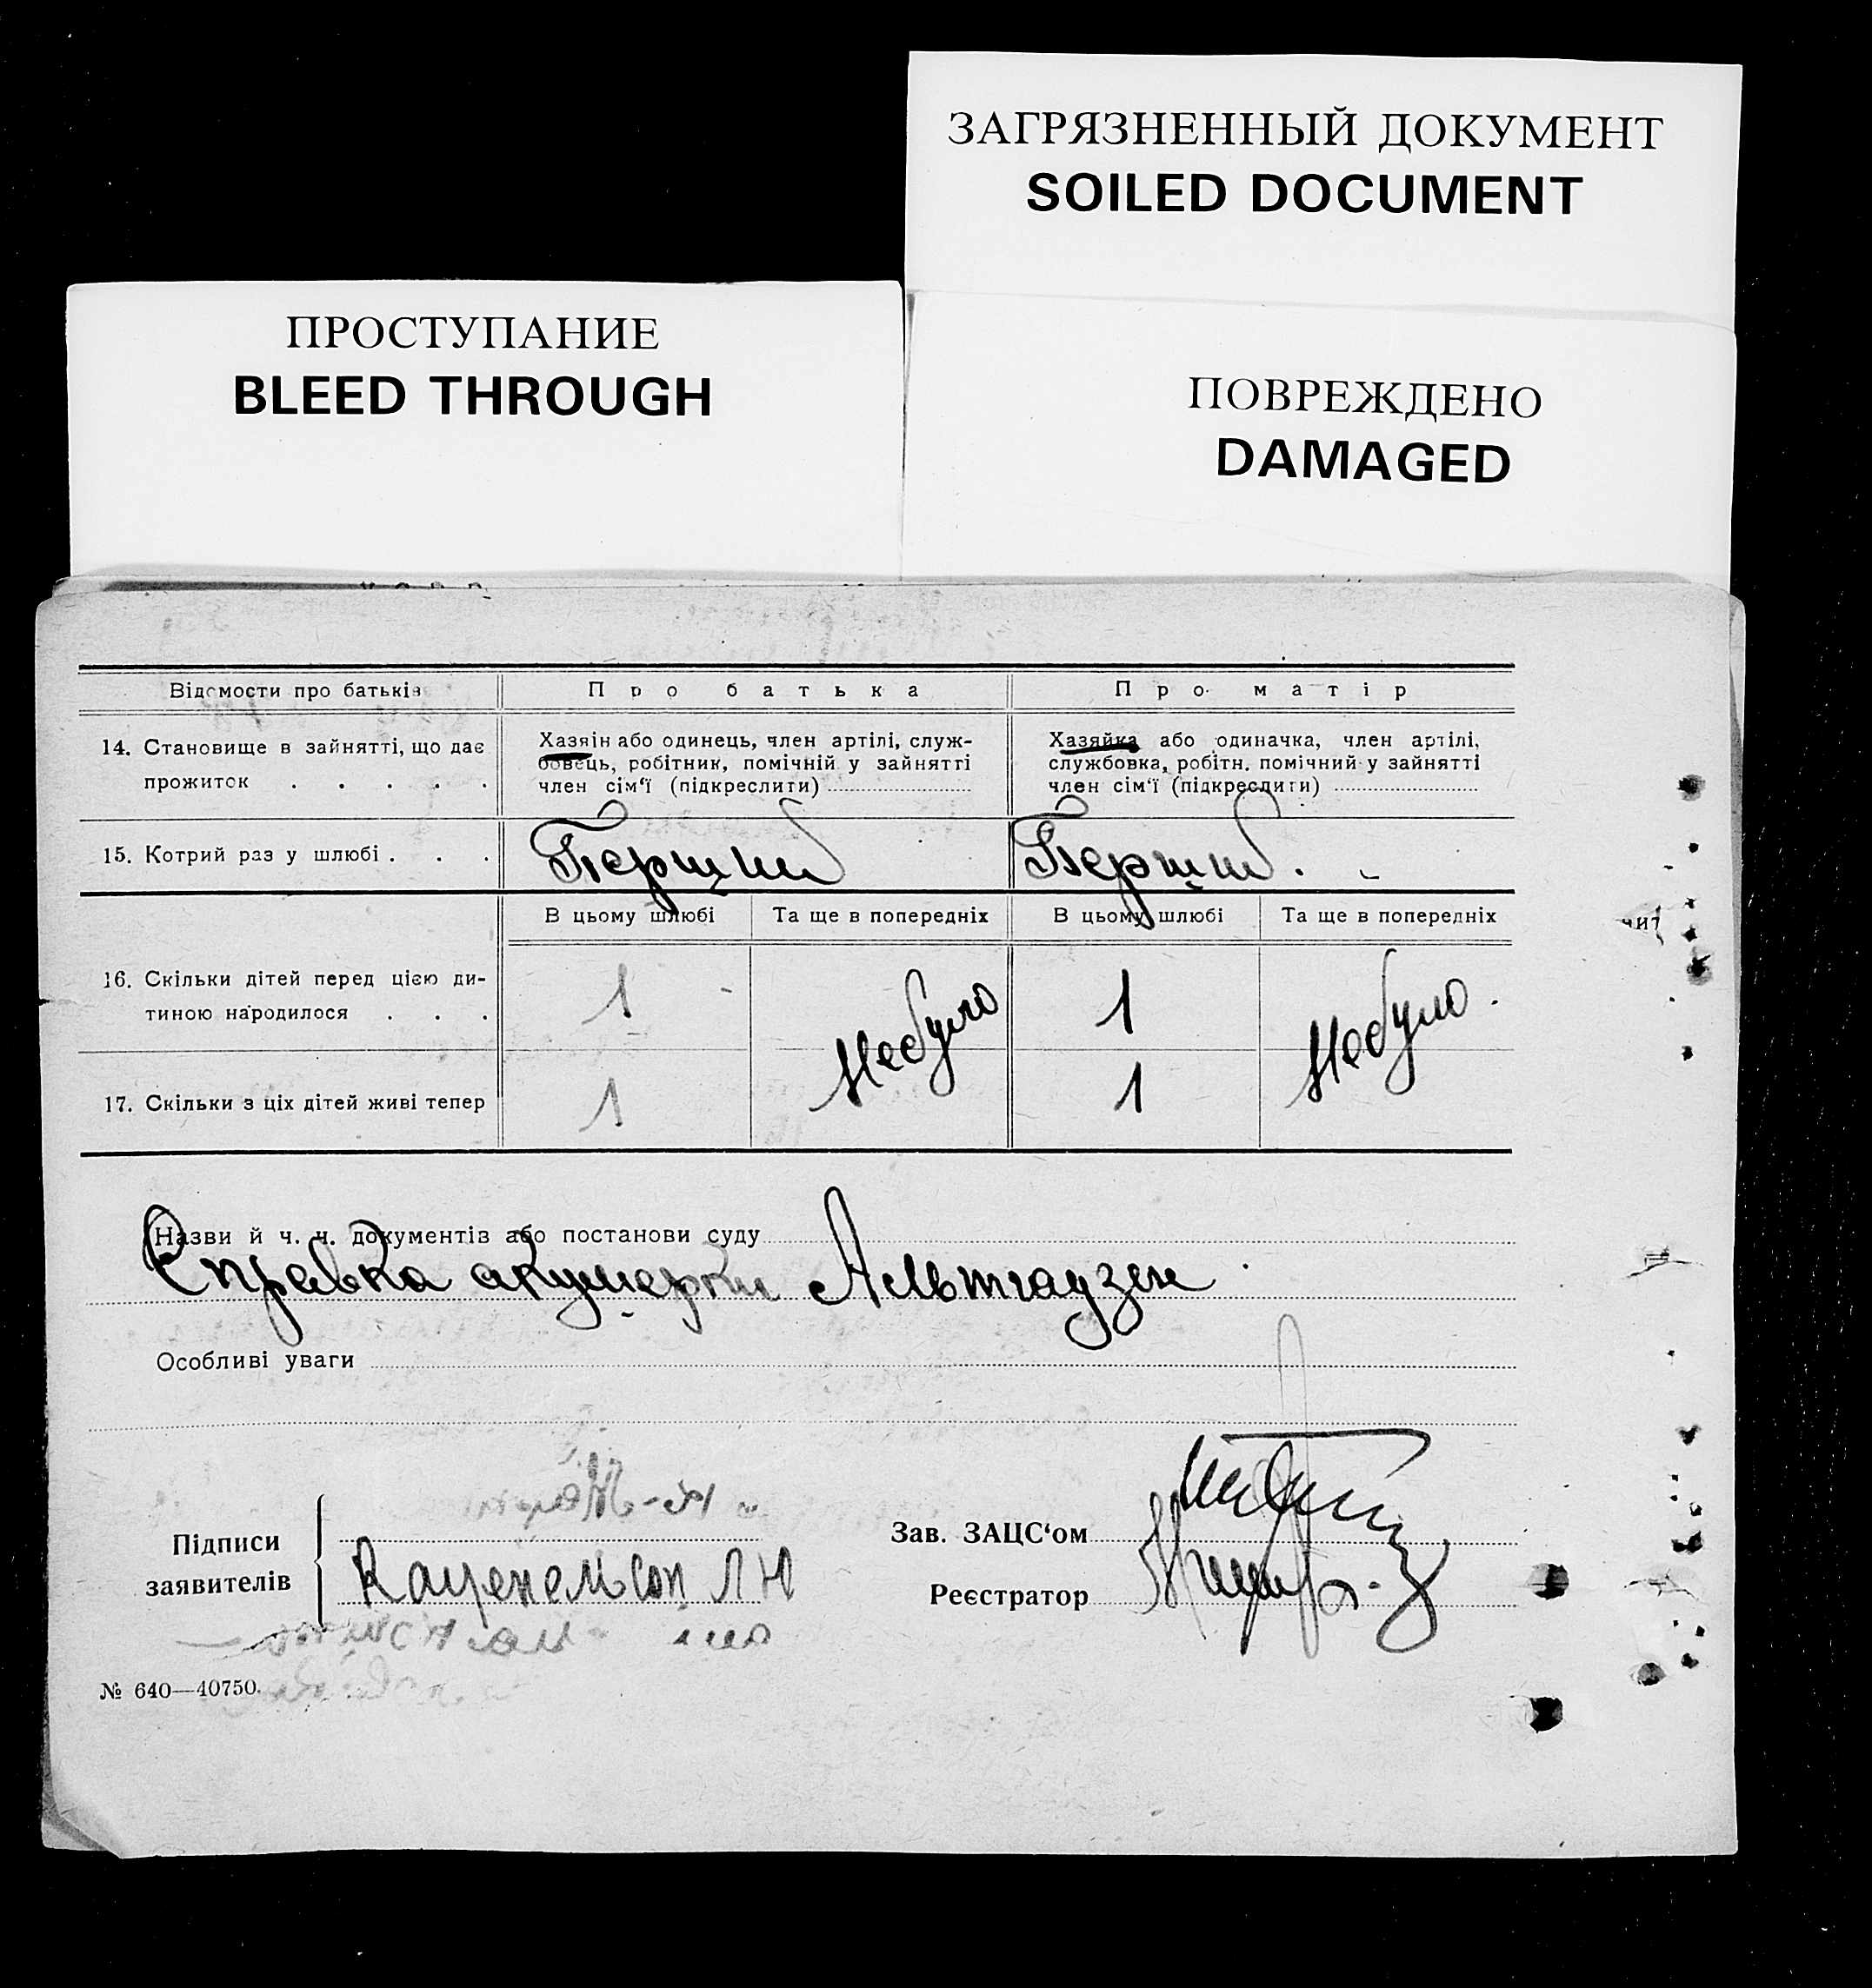 ЗАГРЯЗНЕННЫЙ ДОКУМЕНТ
SOILED DOCUMENT
ПРОСТУПАНИЕ
BLEED THROUGH
ПОВРЕЖДЕНО
DAMAGED
Відомости про батьків
Про батька
Про матір
14. Становище в зайнятті, що дає
прожиток . . . . .
Хазяін або одинець, член артілі, служ-
бовець, робітник, помічній у зайнятті
член сім'ї (підкреслити)
Хазяйка або одиначка, член артілі,
службовка, робітн. помічний у зайнятті
член сім'ї (підкреслити)
15. Котрий раз у шлюбі . . .
Перший
Перший.
В цьому шлюбі
Та ще в попередніх
В цьому шлюбі
Та ще в попередніх
16. Скільки дітей перед цією ди-
тиною народилося . . .
1
Небуло
1
Небуло.
17. Скільки з ціх дітей живі тепер
1
1
Назви й ч. ч. документів або постанови суду
Справка акушерки Альтгаузен
Особливі уваги
Підписи
заявителів
Каценельсон Л Н
Зав. ЗАЦС'ом
Реєстратор
№ 640—40750.